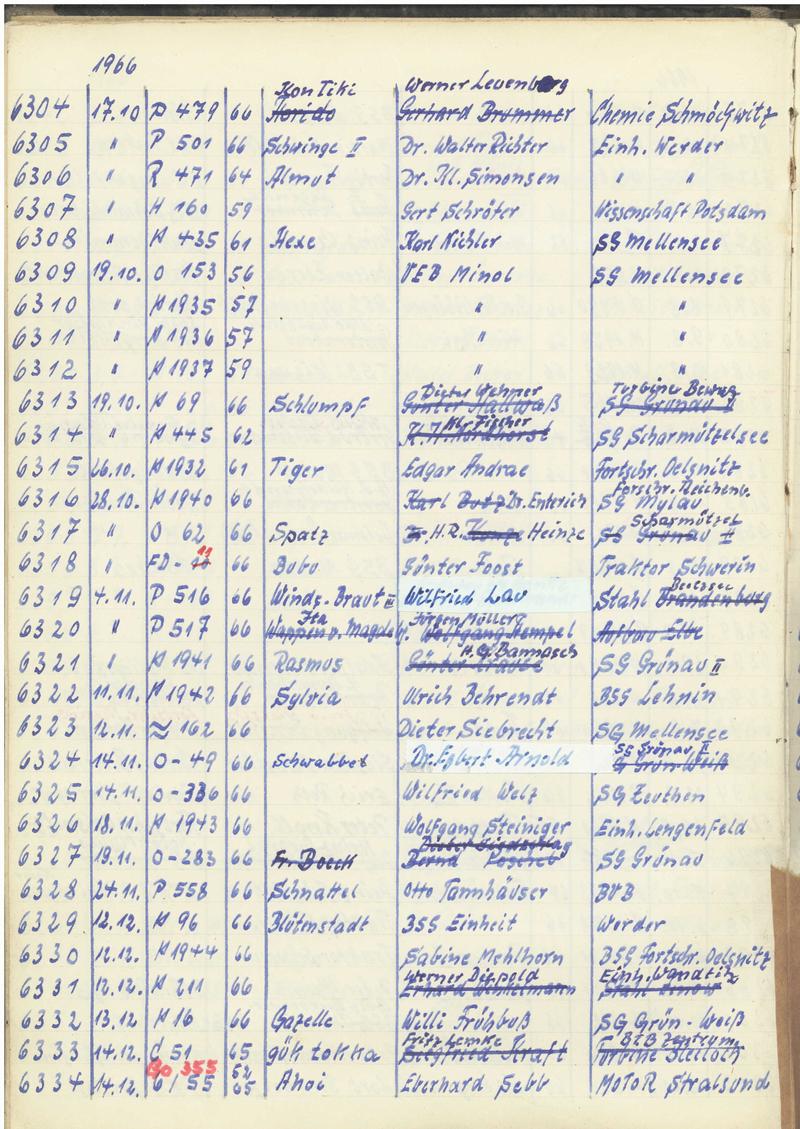 1966
Kon Tiki Werner Levenberg
6304 17.10 P 479 66 Florida Gerhard Brummer Chemie Schmöckwitz
6305 " P 501 66 Schwinge II Dr. Walter Richter Einh. Werder
6306 " R 471 64 Almut Dr. Kl. Simonsen " "
6307 " H 160 59 Gert Schröter Wissenschaft Potsdam
6308 " H 435 61 Hexe Karl Kichler SG Mellensee
6309 19.10. O 153 56 VEB Minol SG Mellensee
6310 " H 1935 57 " "
6311 " H 1936 57 " "
6312 " H 1937 59 " "
Dieter Wehmer Turbine Bewag
6313 19.10. H 69 66 Schlumpf Günter SG Grünau II
Kl. Fischer
6314 " H 445 62 K.H. Nordhorst SG Scharmützelsee
6315 26.10. H 1932 61 Tiger Edgar Andrae Fortschr. Oelsnitz
Forschr. Reichenb.
6316 28.10. H 1940 66 Karl Dr. Enterich SG Mylau
Scharmützel
6317 " O 62 66 Spatz Dr. H.R. Heinze SG Grünau II
11
6318 " FD - 10 66 Bubu Günter Foost Traktor Schwerin
Beetzsee
6319 4.11. P 516 66 Winds-Braut III Wilfried Lau Stahl Brandenburg
Ita Jürgen Möllers
6320 " P 517 66 Wappen v. Magdebg. Wolfgang Hempel Aufbau Elbe
H.G. Bannasch
6321 " H 1941 66 Rasmus Günter SG Grünau II
6322 11.11. H 1942 66 Sylvia Ulrich Behrendt BSG Lehnin
6323 12.11. ≈ 162 66 Dieter Siebrecht SG Mellensee
SG Grünau II
6324 14.11. O - 49 66 Schwabbel Dr. Egbert Arnold G Grün-Weiß
6325 14.11. O - 336 66 Wilfried Welz SG Zeuthen
6326 18.11. H 1943 66 Wolfgang Steiniger Einh. Lengenfeld
Dieter
6327 19.11. O - 283 66 Fr. Boeck Bernd SG Grünau
6328 24.11. P 558 66 Schnattel Otto Tannhäuser BVB
6329 12.12. H 96 66 Blütenstadt BSG Einheit Werder
6330 12.12. H 1944 66 Sabine Mehlhorn BSG Fortschr. Oelsnitz
Werner Diepold Einh. Wandlitz
6331 12.12. H 211 66 Erhard Winkelmann Stahl
6332 13.12 H 16 66 Gazelle Willi Frühbuß SG Grün-Weiß
Fritz Lemke BEB Zentrum
6333 14.12. C 51 65 gük tokka Siegfried Kraft Turbine
Go 355 52
6334 14.12. G / 55 65 Ahoi Eberhard Sebb MOTOR Stralsund